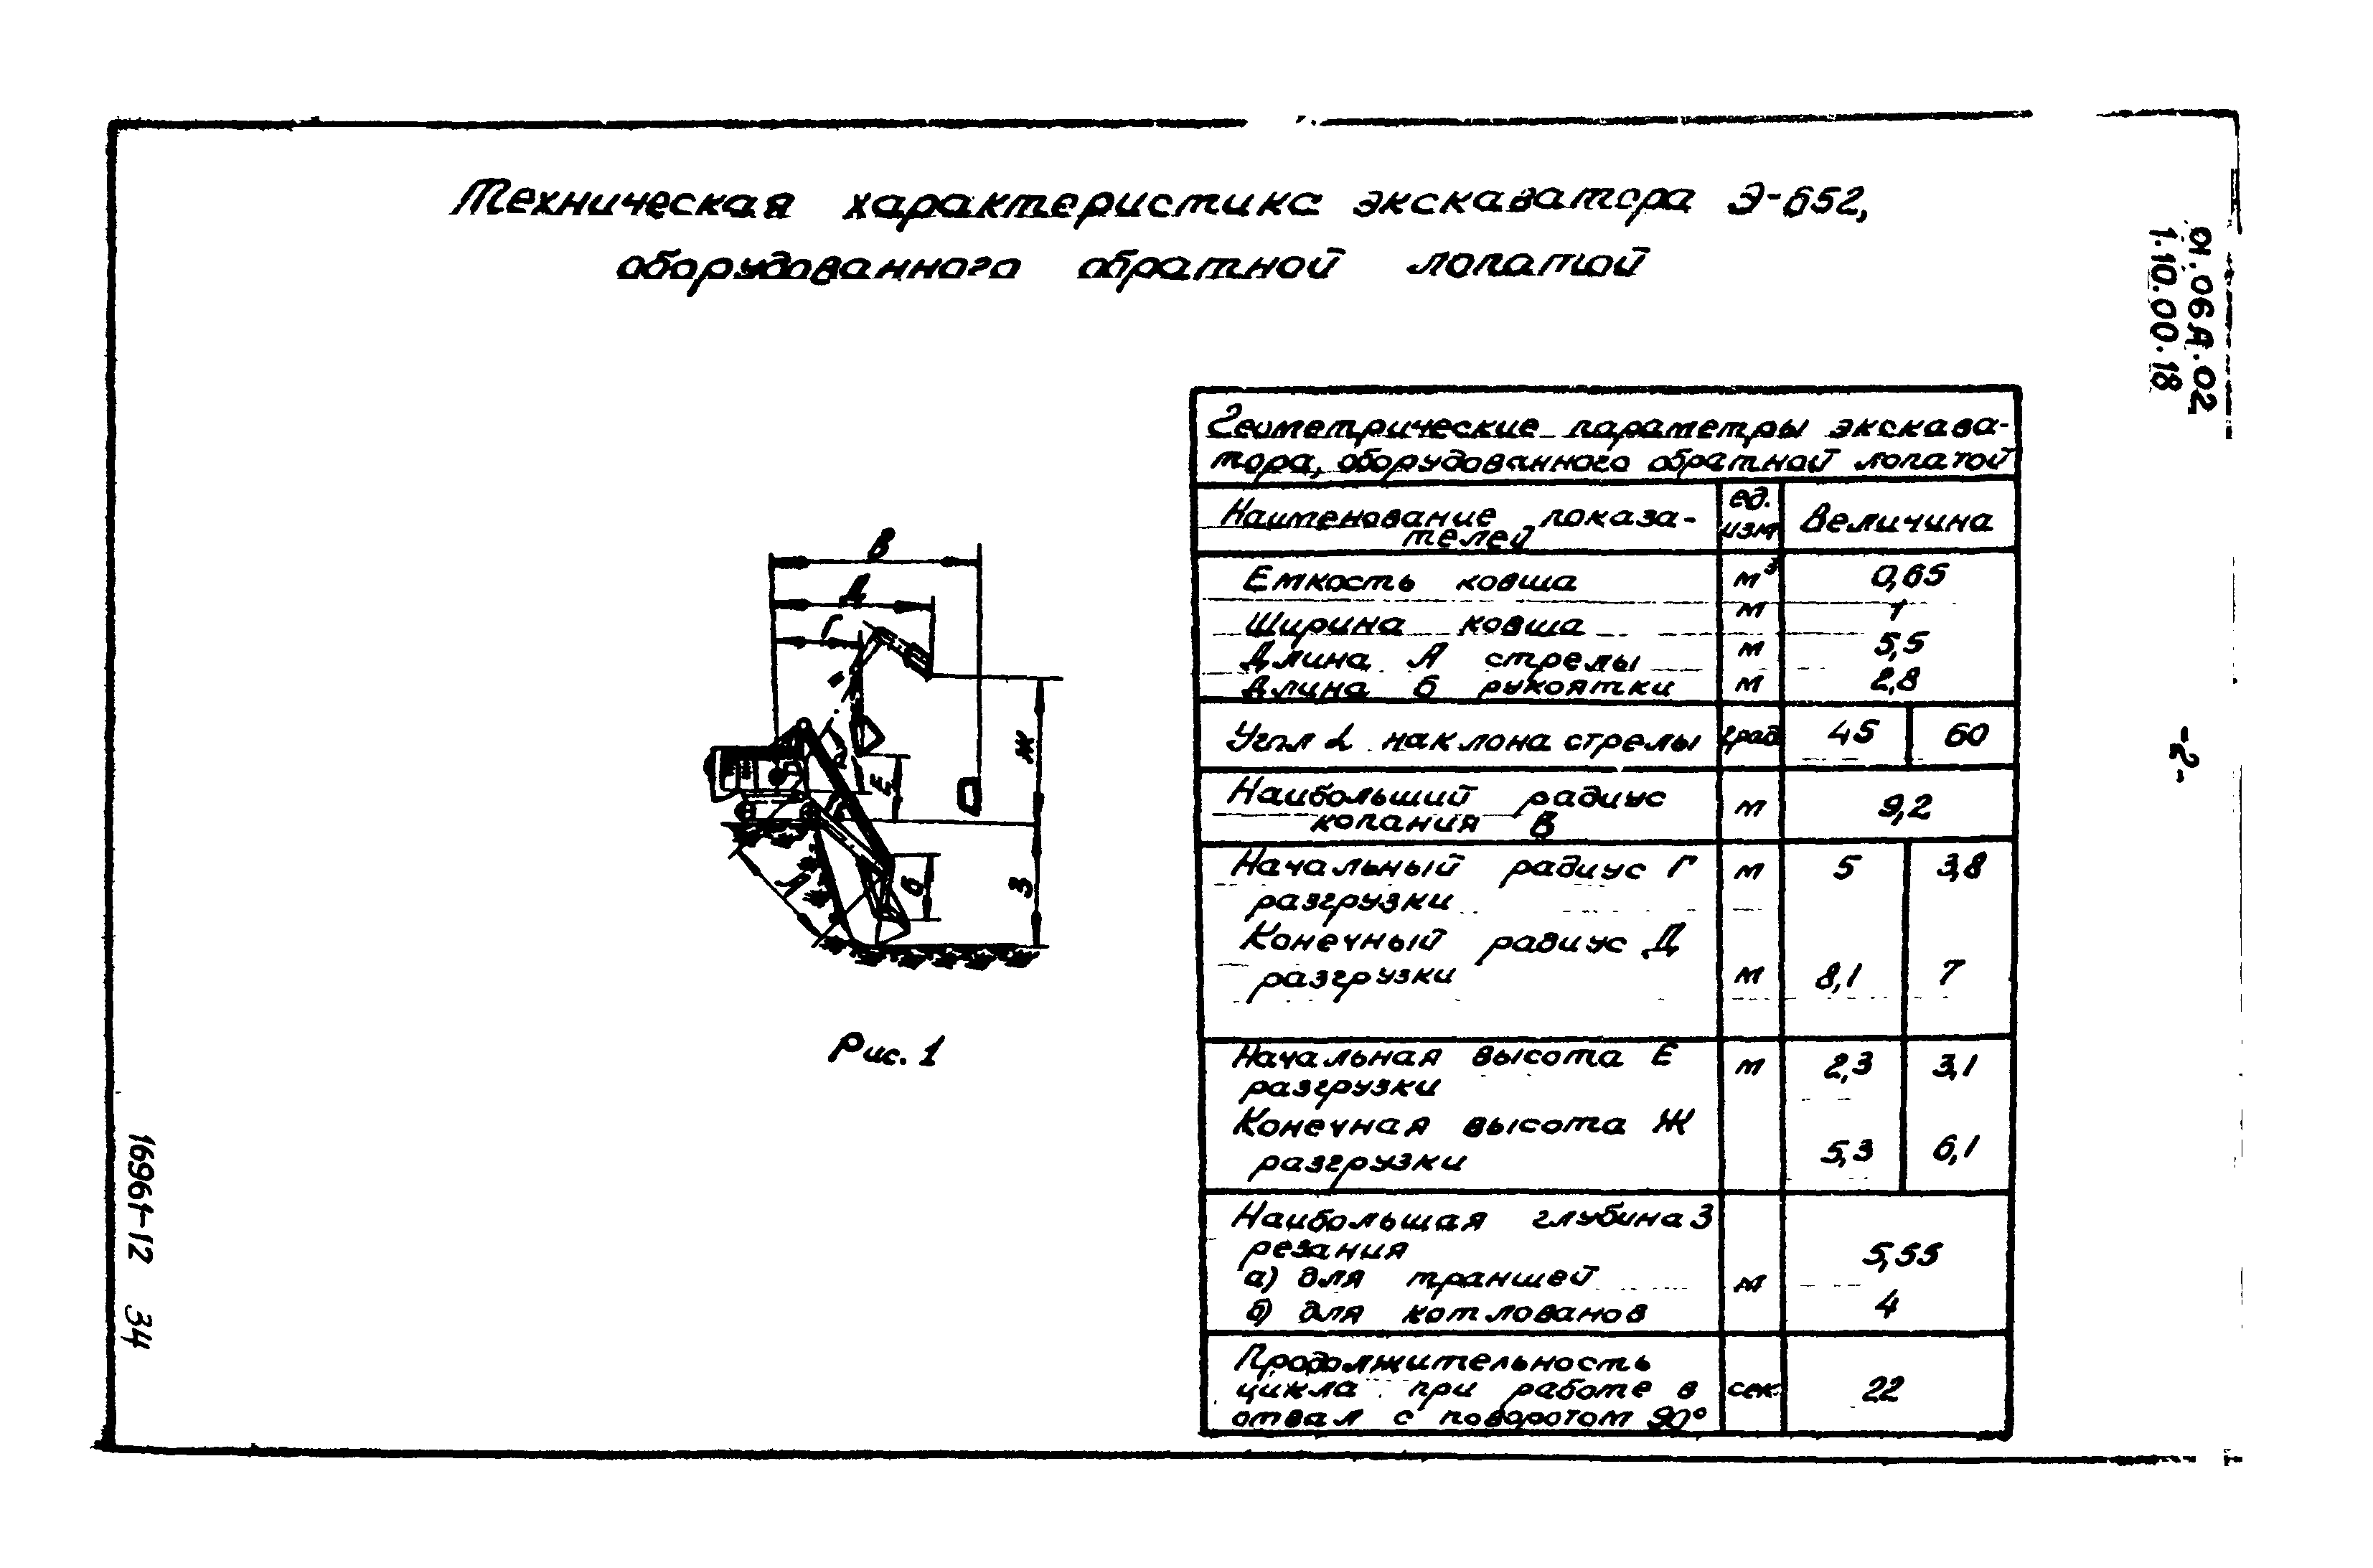 Техническая характеристика экскаватора Э-652,
оборудованного обратной лопатой
01.06А.02
1.10.00.18
-2-
В
Д
Г
Е
Ж
З
А
б
Рис. 1
Геометрические параметры экскава-
тора, оборудованного обратной лопатой
Наименование показа-
телей
ед.
изм
Величина
Емкость ковша м³ 0,65
Ширина ковша м 1
Длина А стрелы м 5,5
Длина б рукоятки м 2,8
Угол α наклона стрелы град 45 60
Наибольший радиус
копания В м 9,2
Начальный радиус Г м 5 3,8
разгрузки
Конечный радиус Д
разгрузки м 8,1 7
Начальная высота Е м 2,3 3,1
разгрузки
Конечная высота Ж
разгрузки 5,3 6,1
Наибольшая глубина З
резания
а) для траншей м 5,55
б) для котлованов 4
Продолжительность
цикла при работе в сек. 22
отвал с поворотом 90°
16961-12 34